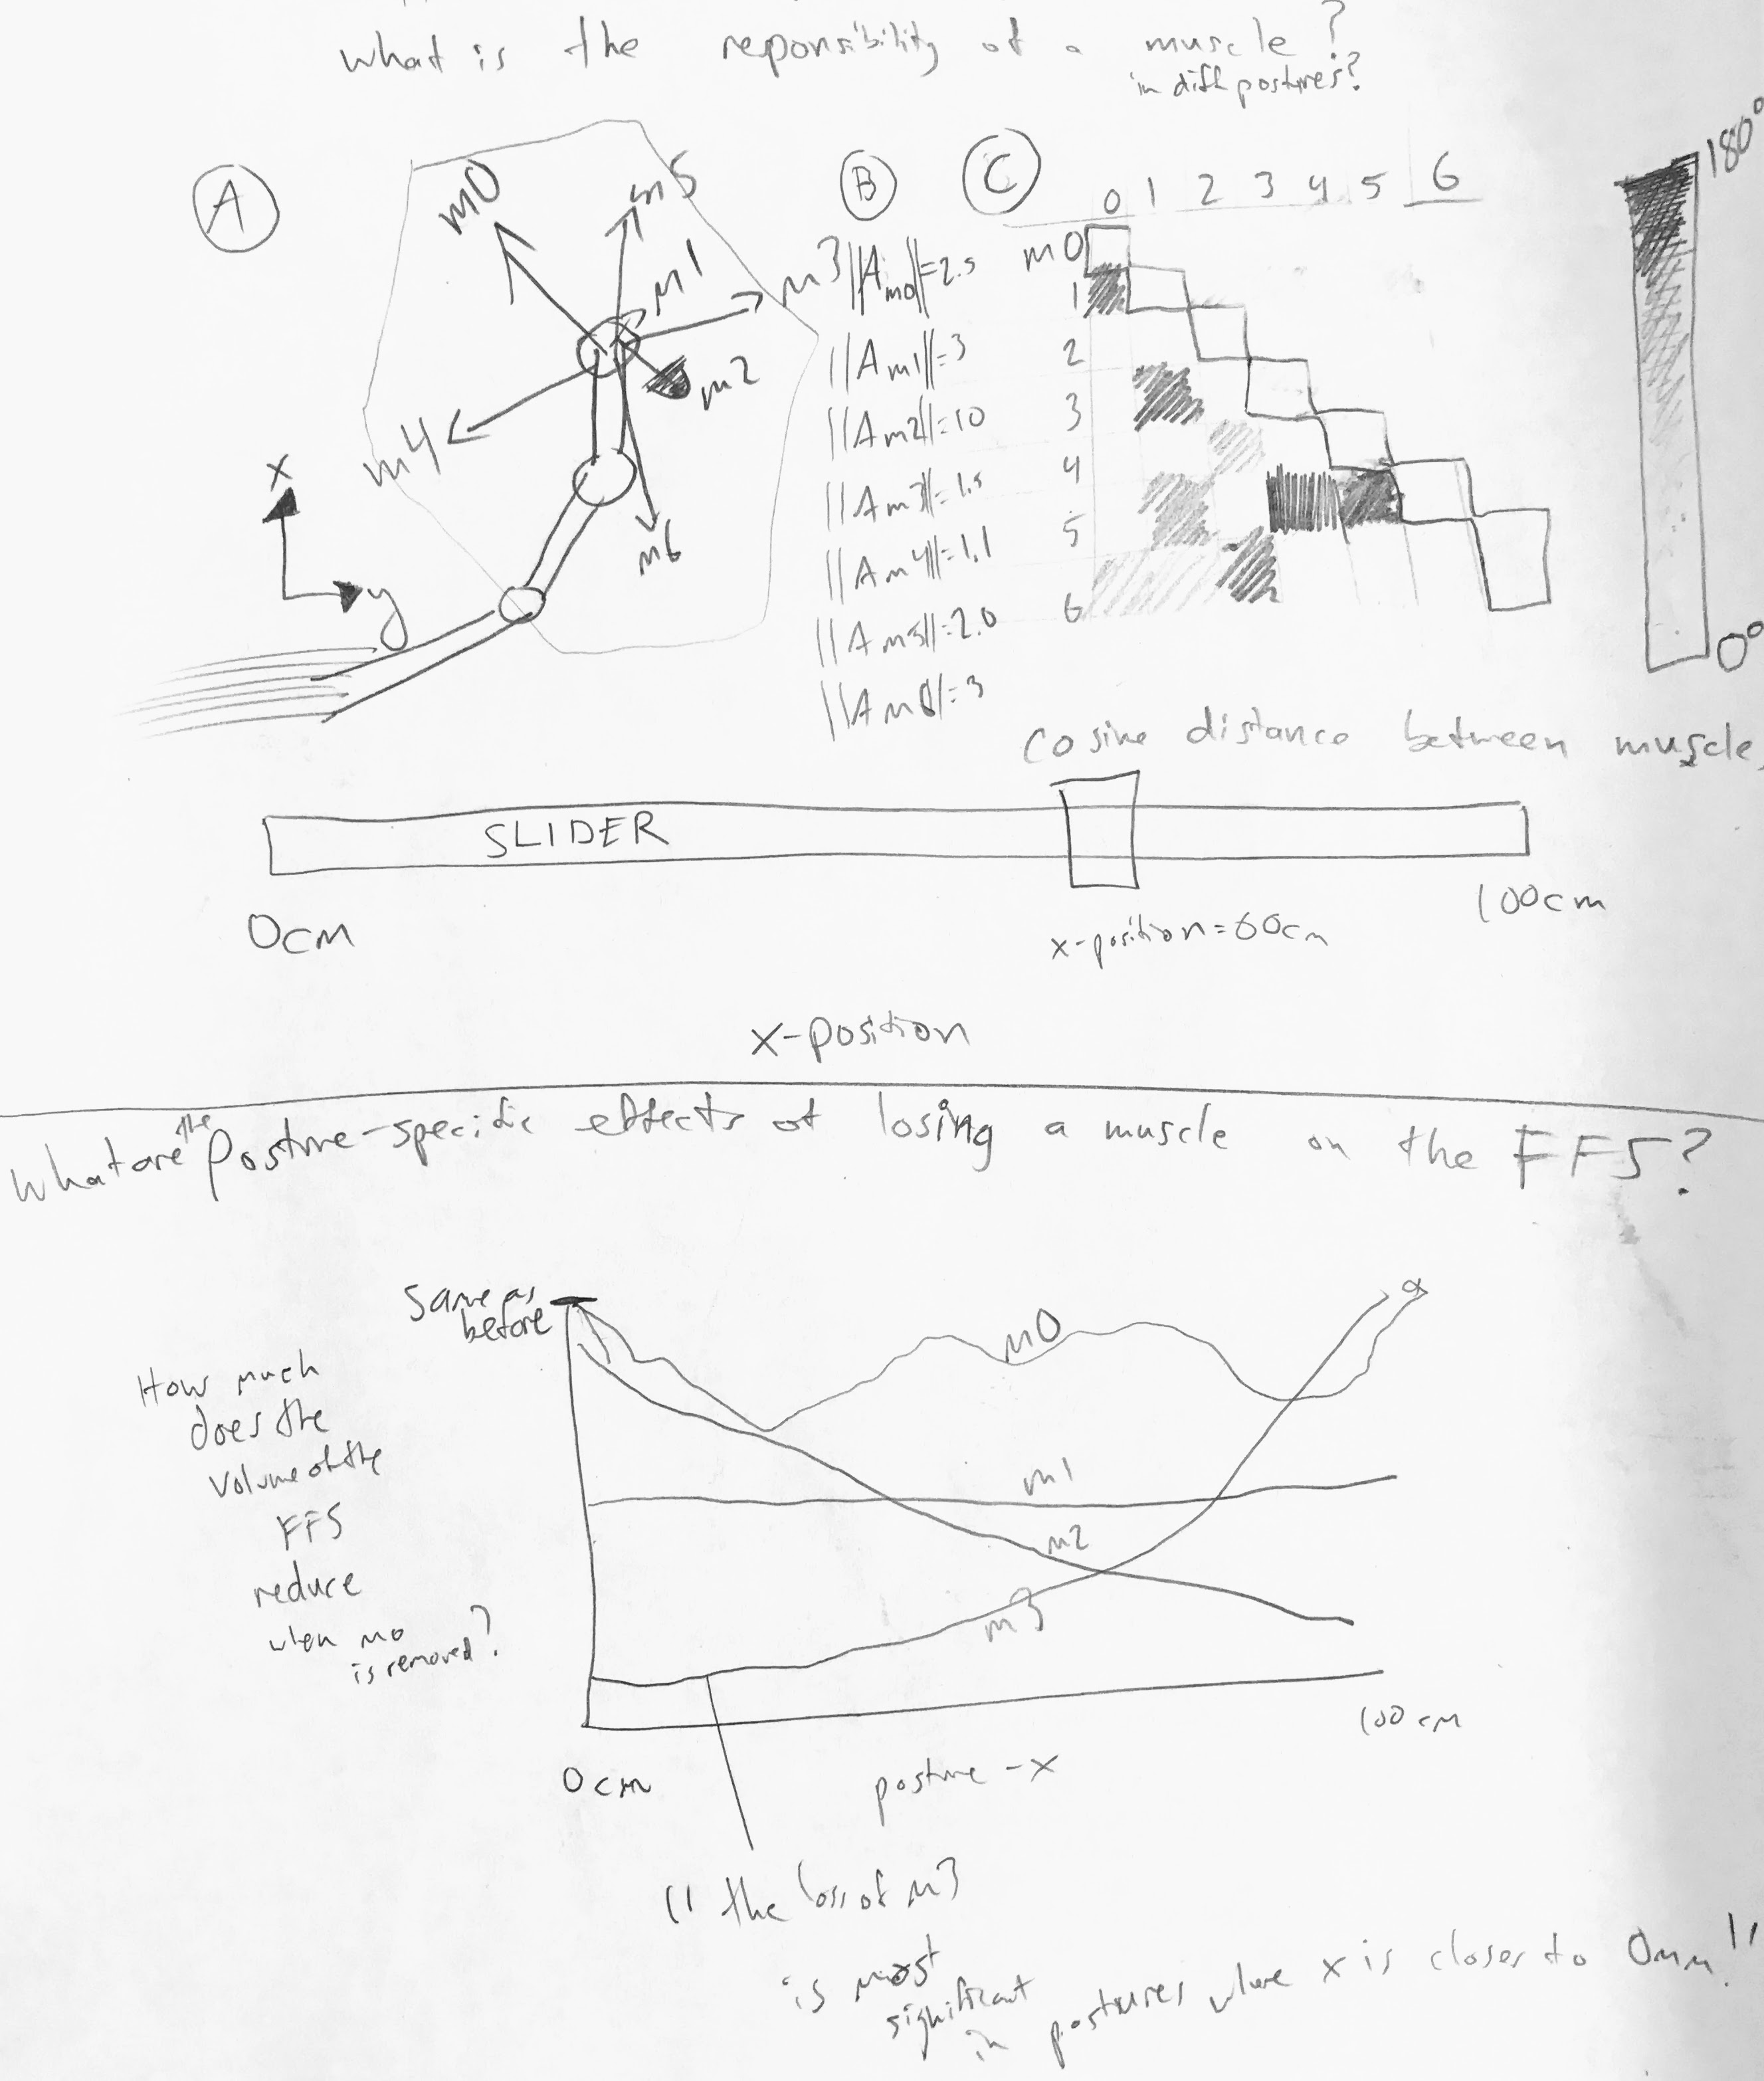 what is the reponsibility of a muscle?
in diff postures?
A
m0
m5
m1
m3
m2
m4
m6
x
y
B
||Am0||=2.5
||Am1||=3
||Am2||=10
||Am3||=1.5
||Am4||=1.1
||Am5||=2.0
||Am6||=3
C
0 1 2 3 4 5 6
m0
1
2
3
4
5
6
180°
0°
cosine distance between muscles
SLIDER
0cm
100cm
x-position=60cm
x-position
what are the posture-specific effects of losing a muscle on the FFS?
Same as
before
How much
does the
volume of the
FFS
reduce
when m0
is removed?
m0
m1
m2
m3
0cm
posture-x
100cm
"the loss of m3
is most
significant
in postures where x is closer to 0mm"